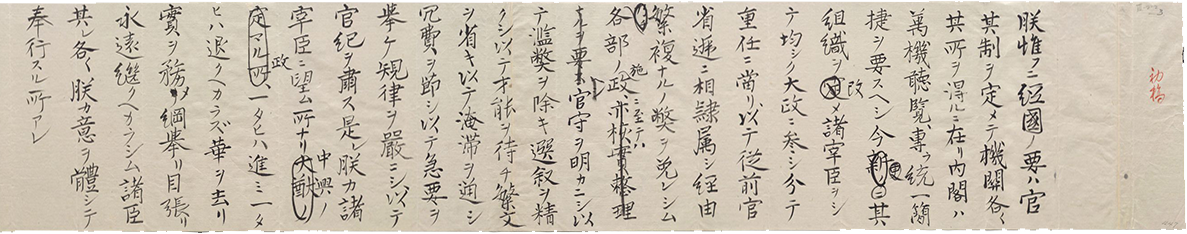 初稿
朕惟フニ經國ノ要ハ官
其制ヲ定メテ機關各〻
其所ヲ得ルニ在リ内閣ハ
萬機聽覧、專ラ統一簡
捷ヲ要スヘシ今 更ニ其
組織ヲ改メ諸宰臣ヲシ
テ均シク大政ニ参シ分テ
重任ニ當リ以テ從前官
省遞ニ相隷属シ経由
繁複ナルノ弊ヲ免レシム
各部ノ施政ニ至テハ
官守ヲ明カニシ以
テ濫弊ヲ除キ選叙ヲ精
クシ以テ才能ヲ待チ繁文
ヲ省キ以テ淹滞ヲ通シ
冗費ヲ節シ以テ急要ヲ
擧ケ規律ヲ嚴ニシ以テ
官紀ヲ肅ス是レ朕カ諸
宰臣ニ望ム所ナリ中興ノ
政一タヒハ進ミ一タ
ヒハ退クヘカラズ華ヲ去リ
實ヲ務メ綱擧リ目張リ
永遠継クヘカラシム諸臣
其レ各〻朕カ意ヲ體シテ
奉行スル所アレ